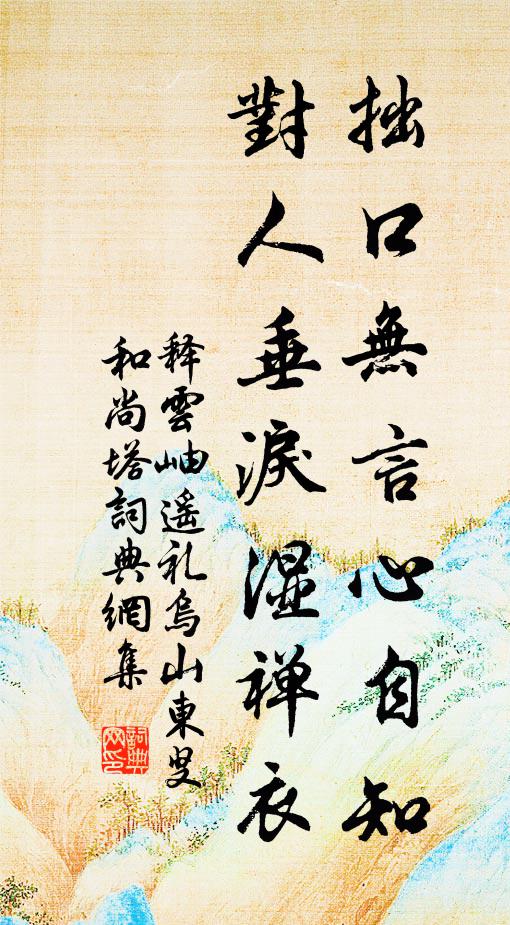 拙口無言心自知
對人垂淚湿禅衣
释雲岫遥礼烏山東叟
和尚塔詞典網集
詞典网印